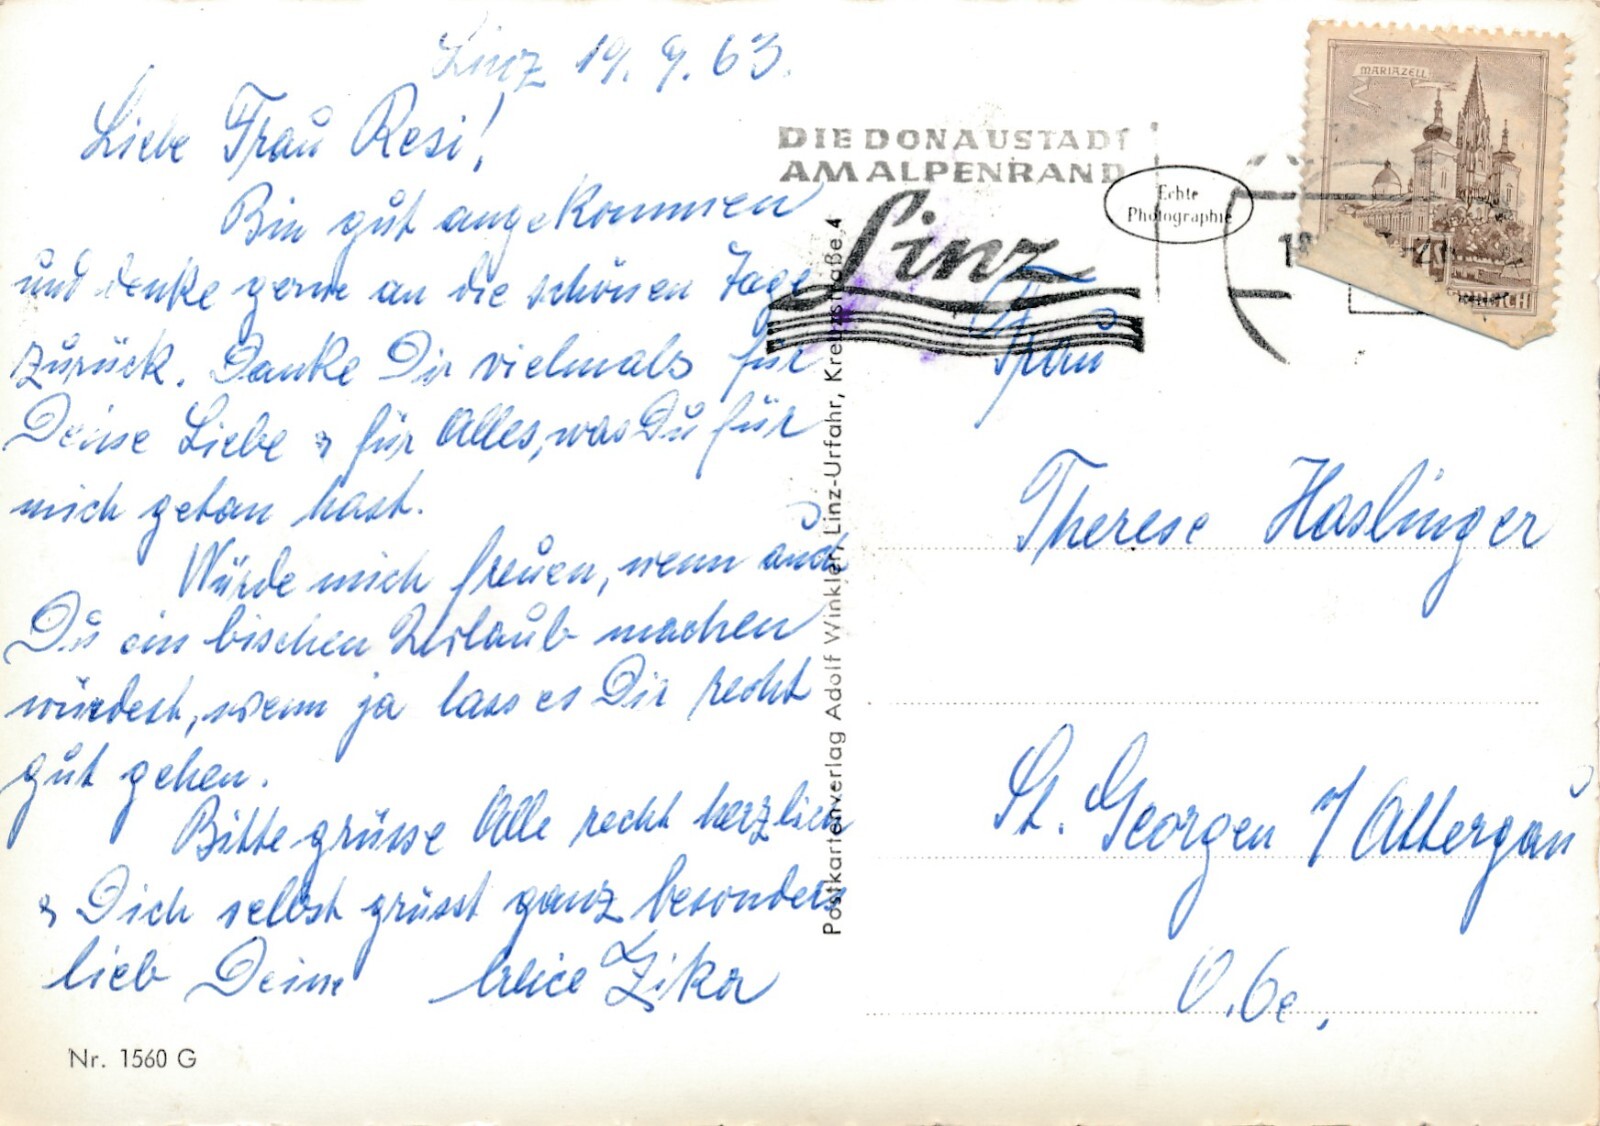 Linz 19. 9. 63.
Liebe Frau Resi!
Bin gut angekommen
und denke gerne an die schönen Tage
zurück. Danke Dir vielmals für
Deine Liebe & für Alles, was Du für
mich getan hast.
Würde mich freuen, wenn auch
Du ein bischen Urlaub machen
würdest, wenn ja lass es Dir recht
gut gehen.
Bitte grüsse Alle recht herzlich
& Dich selbst grüsst ganz besonders
lieb Deine Alice Zika
Nr. 1560 G
Postkartenverlag Adolf Winkler, Linz-Urfahr, Kreuzstraße 4
DIE DONAUSTADT
AM ALPENRAND
Linz
Echte
Photographie
MARIAZELL
Frau
Therese Haslinger
St. Georgen i/ Attergau